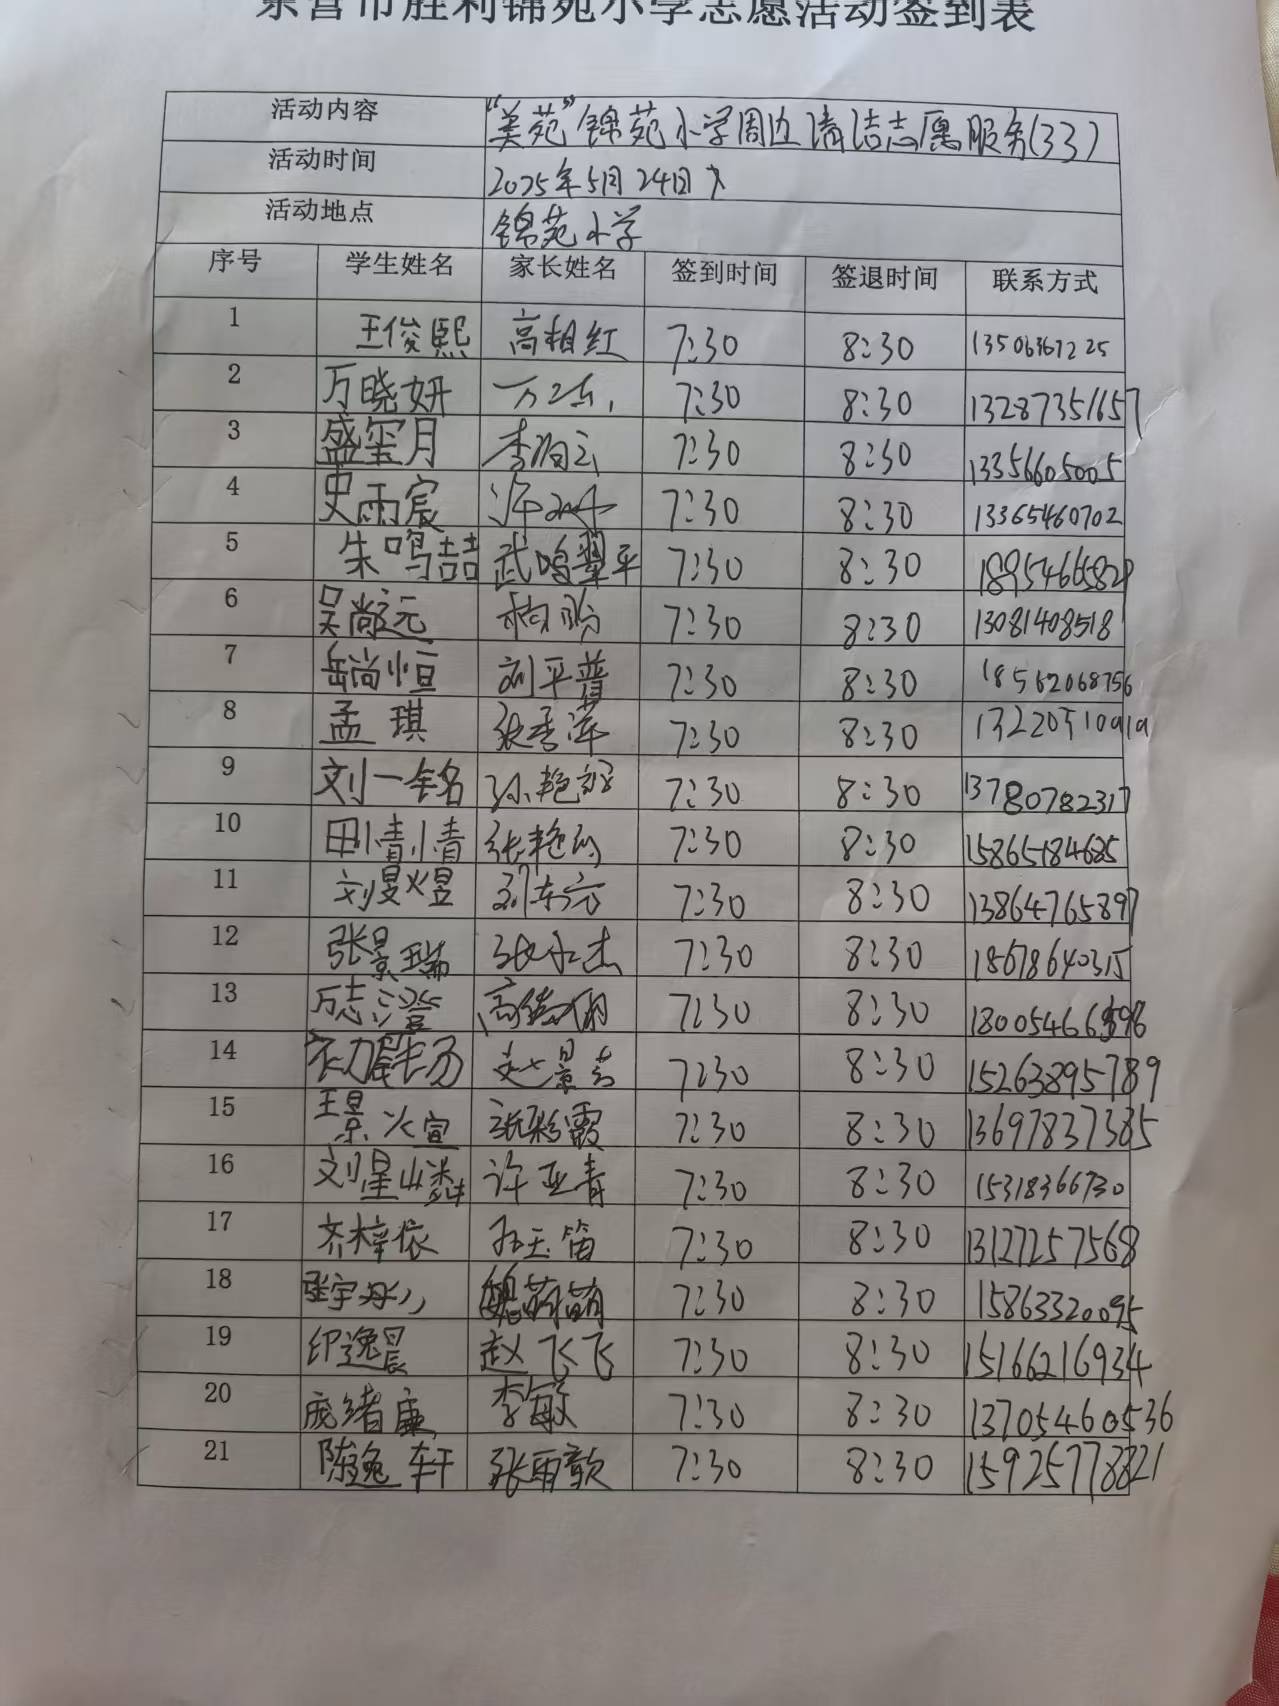 东营市胜利锦苑小学志愿活动签到表
活动内容 “美苑”锦苑小学周边清洁志愿服务(33)
活动时间 2025年5月24日
活动地点 锦苑小学
序号 学生姓名 家长姓名 签到时间 签退时间 联系方式
1 王俊熙 高相红 7:30 8:30 13506367225
2 万晓妍 7:30 8:30 13287351657
3 盛玺月 7:30 8:30 13356605005
4 史雨宸 7:30 8:30 13365460702
5 朱鸣喆 7:30 8:30
6 吴尚远 7:30 8:30 13081408518
7 岳尚恒 刘平普 7:30 8:30 18562068756
8 孟琪 张秀萍 7:30 8:30
9 刘一铭 7:30 8:30 13780782317
10 田情情 7:30 8:30 15865184685
11 刘旻煜 7:30 8:30 13864765897
12 张景瑞 张永杰 7:30 8:30 18678640315
13 万志澄 7:30 8:30
14 7:30 8:30 15263895789
15 王景煊 张彩霞 7:30 8:30 13697837385
16 刘星嶙 许亚青 7:30 8:30 15318366730
17 齐梓依 孙玉笛 7:30 8:30 13127257568
18 张宇彤 魏萌萌 7:30 8:30 15863320095
19 印逸晨 赵飞飞 7:30 8:30 15166216934
20 庞绪廉 李敏 7:30 8:30 13705460536
21 陈逸轩 张雨歆 7:30 8:30 15925778821